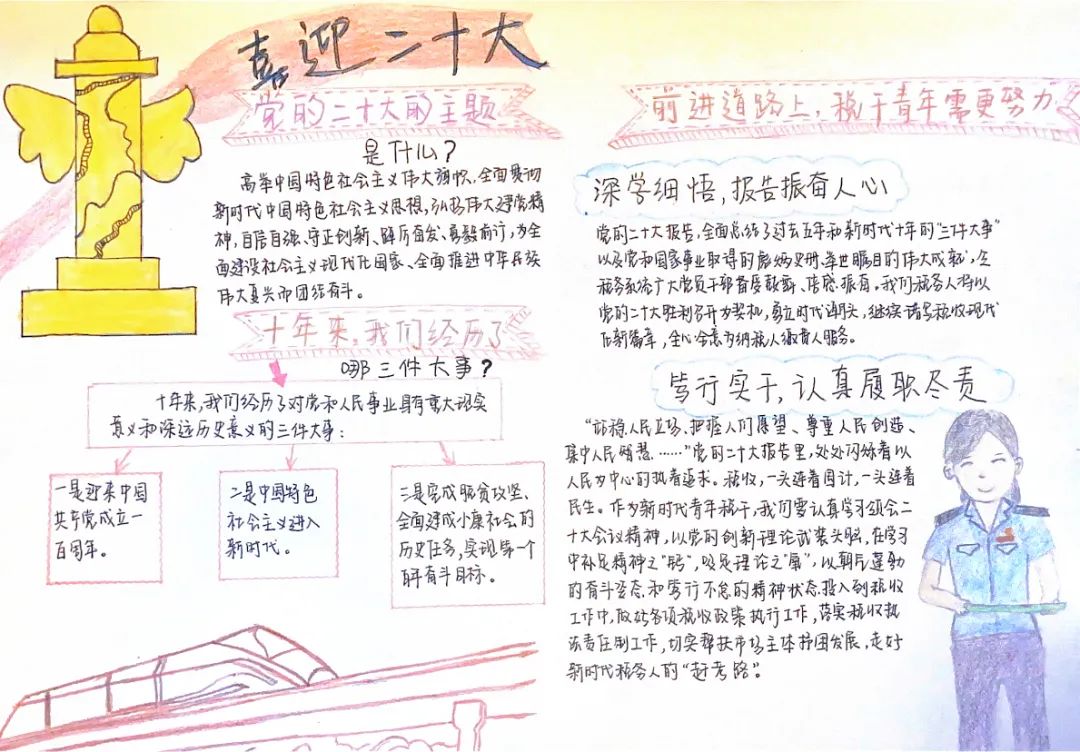 喜迎二十大
党的二十大的主题
是什么?
高举中国特色社会主义伟大旗帜,全面贯彻
新时代中国特色社会主义思想,弘扬伟大建党精
神,自信自强、守正创新、踔厉奋发、勇毅前行,为全
面建设社会主义现代化国家、全面推进中华民族
伟大复兴而团结奋斗。
十年来,我们经历了
哪三件大事?
十年来,我们经历了对党和人民事业具有重大现实
意义和深远历史意义的三件大事:
一是迎来中国
共产党成立一
百周年。
二是中国特色
社会主义进入
新时代。
三是完成脱贫攻坚、
全面建成小康社会的
历史任务,实现第一个
百年奋斗目标。
前进道路上,税干青年需更努力
深学细悟,报告振奋人心
党的二十大报告,全面总结了过去五年和新时代十年的“三件大事”
以及党和国家事业取得的彪炳史册、举世瞩目的伟大成就,令
税务系统广大党员干部备受鼓舞、倍感振奋。我们税务人将以
党的二十大胜利召开为契机,勇立时代潮头,继续谱写税收现代
化新篇章,全心全意为纳税人缴费人服务。
笃行实干,认真履职尽责
“站稳人民立场、把握人们愿望、尊重人民创造、
集中人民智慧……”党的二十大报告里,处处闪烁着以
人民为中心的执着追求。税收,一头连着国计,一头连着
民生。作为新时代青年税干,我们要认真学习领会二
十大会议精神,以党的创新理论武装头脑,在学习
中补足精神之“钙”,吸足理论之“氧”,以朝气蓬勃
的奋斗姿态和笃行不怠的精神状态投入到税收
工作中,做好各项税收政策执行工作,落实税收执
法责任制工作,切实帮扶市场主体抒困发展,走好
新时代税务人的“赶考路”。